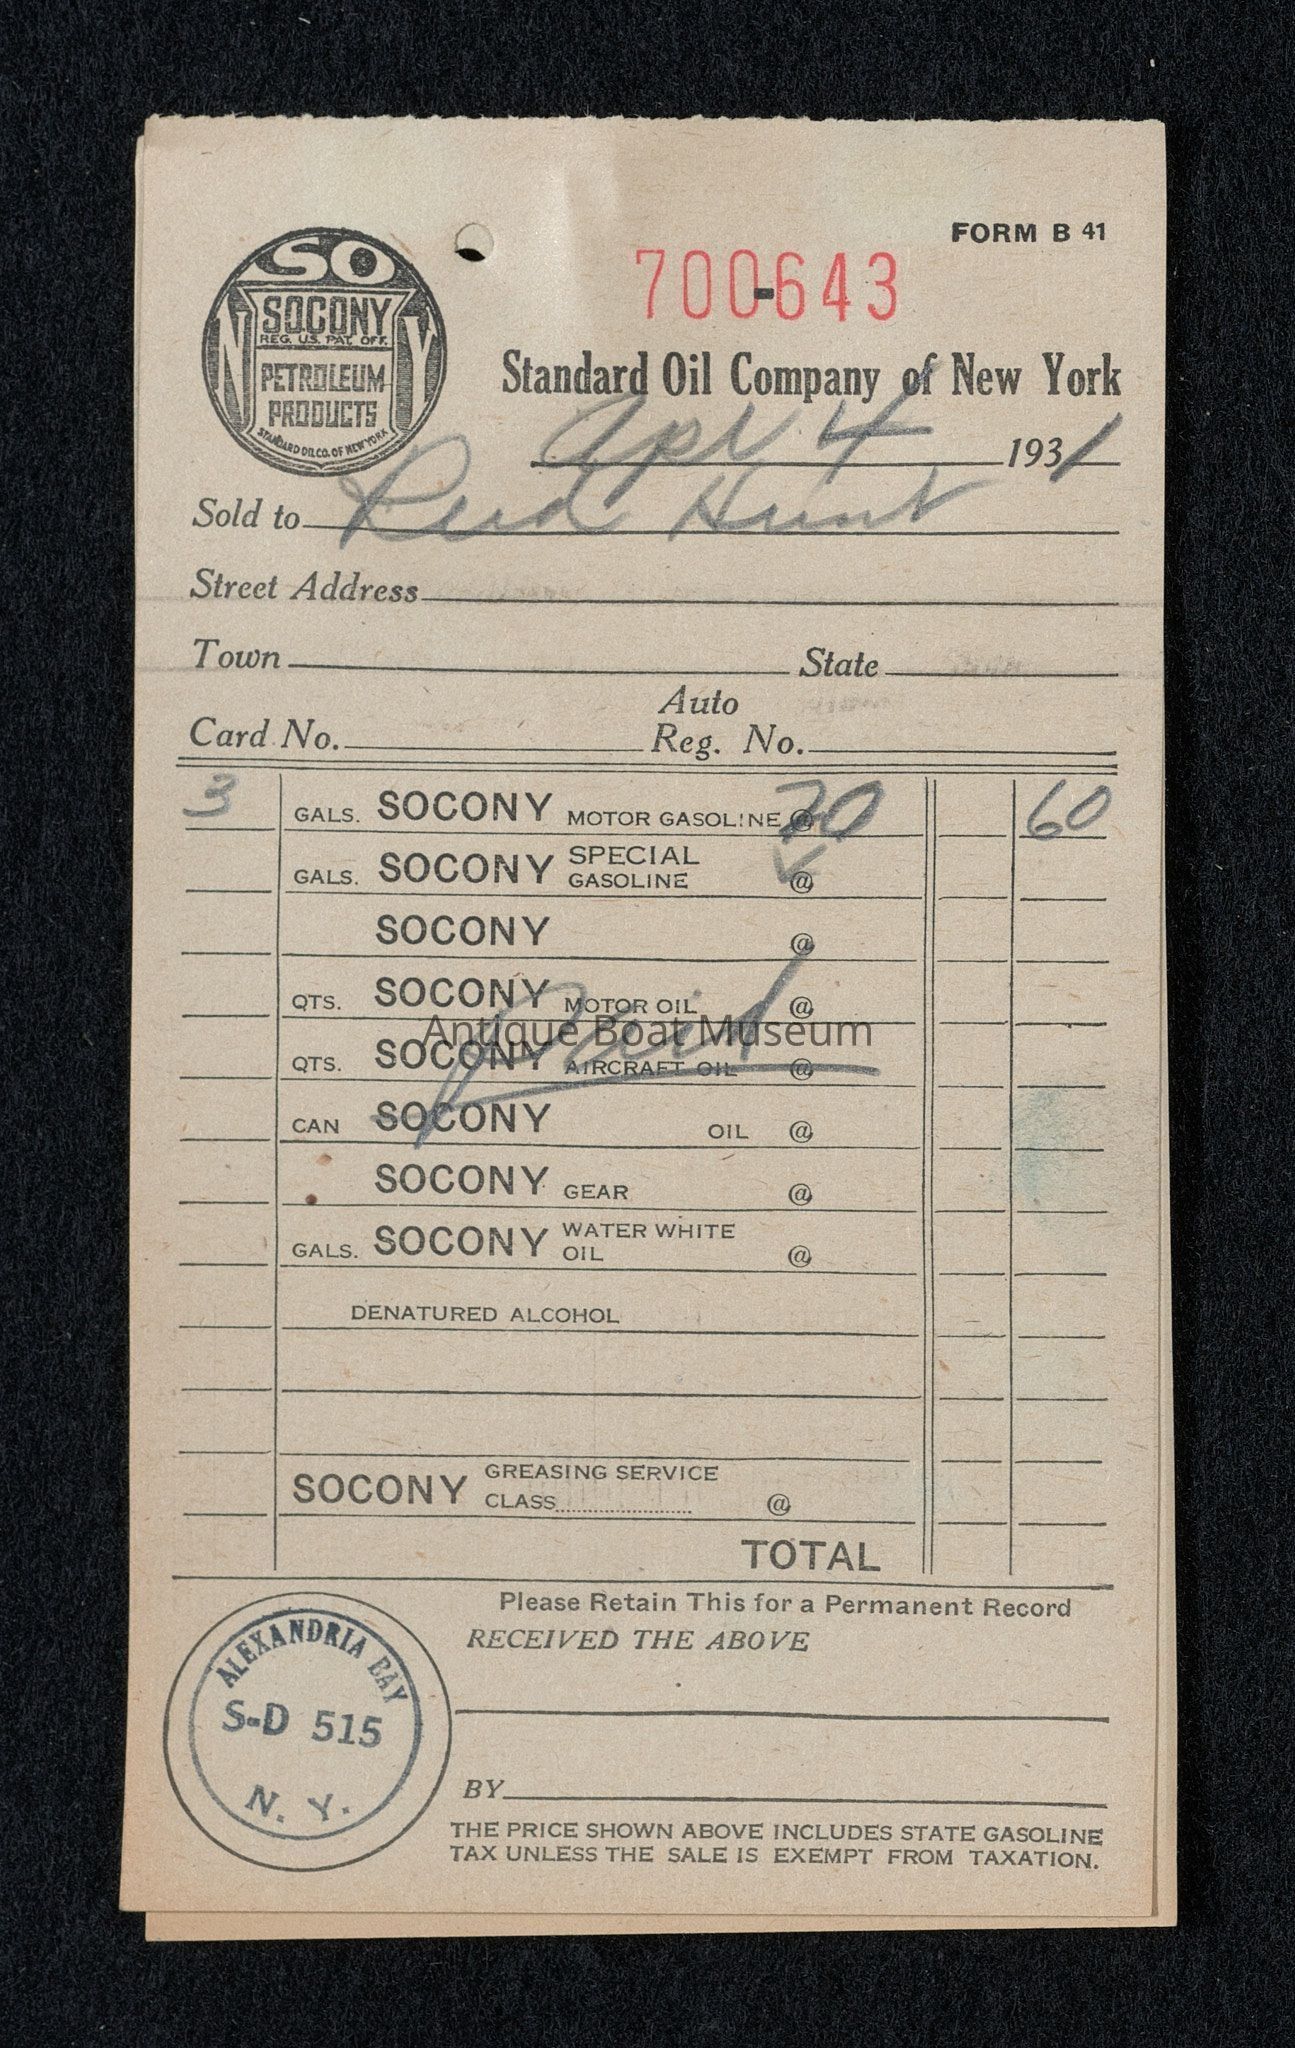 FORM B 41
SO
N Y
SOCONY
REG. U.S. PAT. OFF.
PETROLEUM
PRODUCTS
STANDARD OIL CO. OF NEW YORK
700-643
Standard Oil Company of New York
Apr 4 1931
Sold to Reid Hunt
Street Address
Town State
Auto
Card No. Reg. No.
3 GALS. SOCONY MOTOR GASOLINE @ 20 60
GALS. SOCONY SPECIAL GASOLINE @
SOCONY @
QTS. SOCONY MOTOR OIL @
Paid
Antique Boat Museum
QTS. SOCONY AIRCRAFT OIL @
CAN SOCONY OIL @
SOCONY GEAR @
GALS. SOCONY WATER WHITE OIL @
DENATURED ALCOHOL
SOCONY GREASING SERVICE
CLASS @
TOTAL
Please Retain This for a Permanent Record
RECEIVED THE ABOVE
ALEXANDRIA BAY
S-D 515
N. Y.
BY
THE PRICE SHOWN ABOVE INCLUDES STATE GASOLINE
TAX UNLESS THE SALE IS EXEMPT FROM TAXATION.